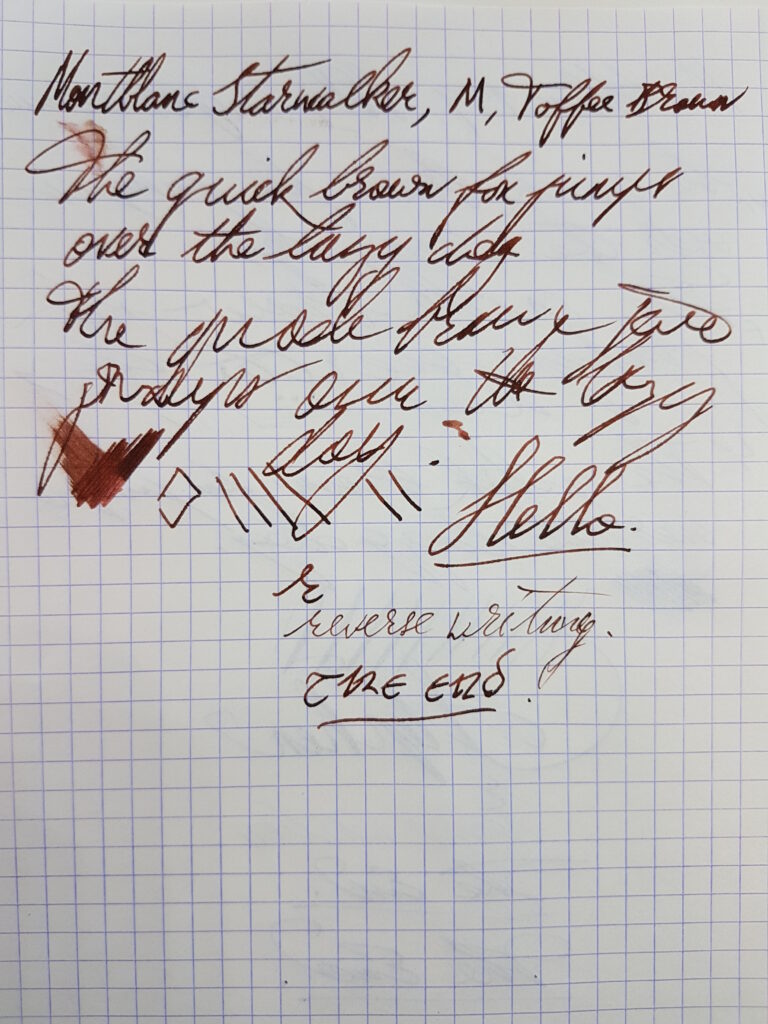 Montblanc Starwalker, M, Toffee Brown
The quick brown fox jumps
over the lazy dog
The
over the lazy
dog.
Hello.
r
reverse writing.
THE END.